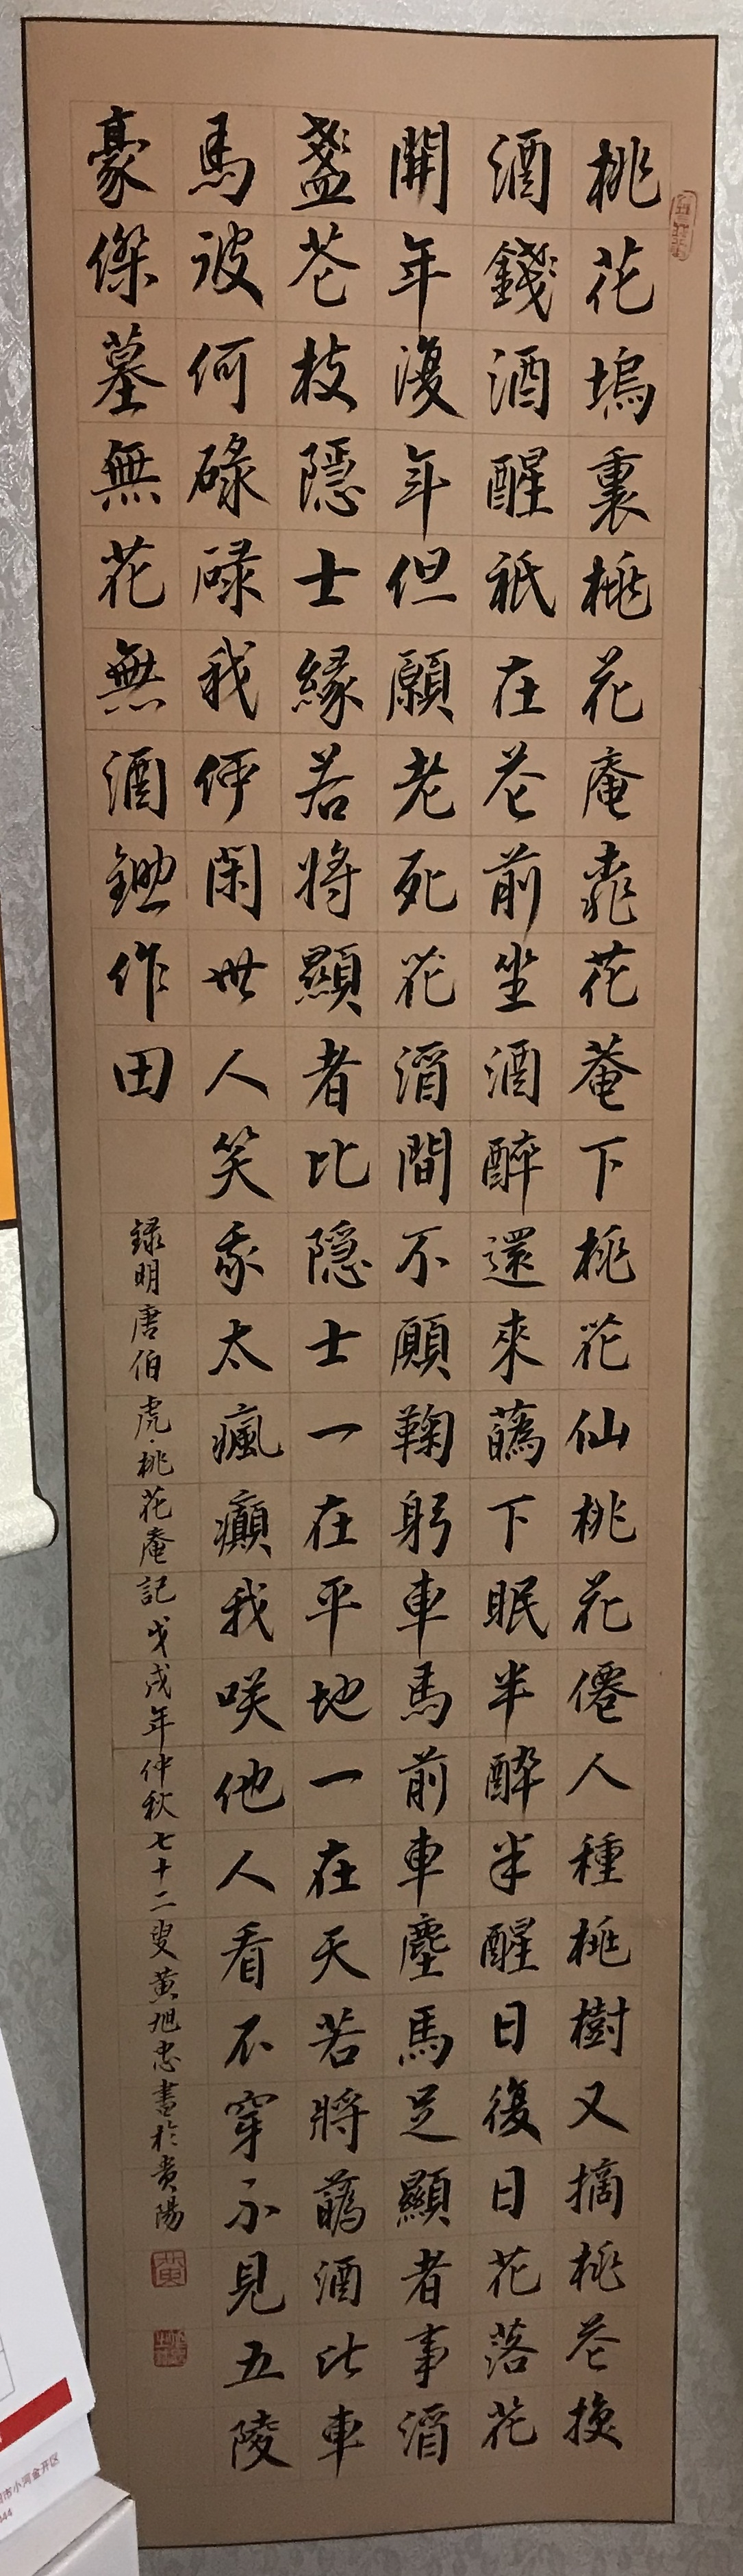 桃花塢裏桃花庵桃花菴下桃花仙桃花僊人種桃樹又摘桃花換
酒錢酒醒祇在花前坐酒醉還來蘤下眠半醉半醒日復日花落花
開年復年但願老死花酒間不願鞠躬車馬前車塵馬足顯者事酒
盞花枝隱士緣若將顯者比隱士一在平地一在天若將蘤酒比車
馬彼何碌碌我何閑世人笑我太瘋癲我咲他人看不穿不見五陵
豪傑墓無花無酒鋤作田
錄明唐伯虎·桃花庵記戊戌年仲秋七十二叟黃旭忠書於貴陽
黃
市小河金开区